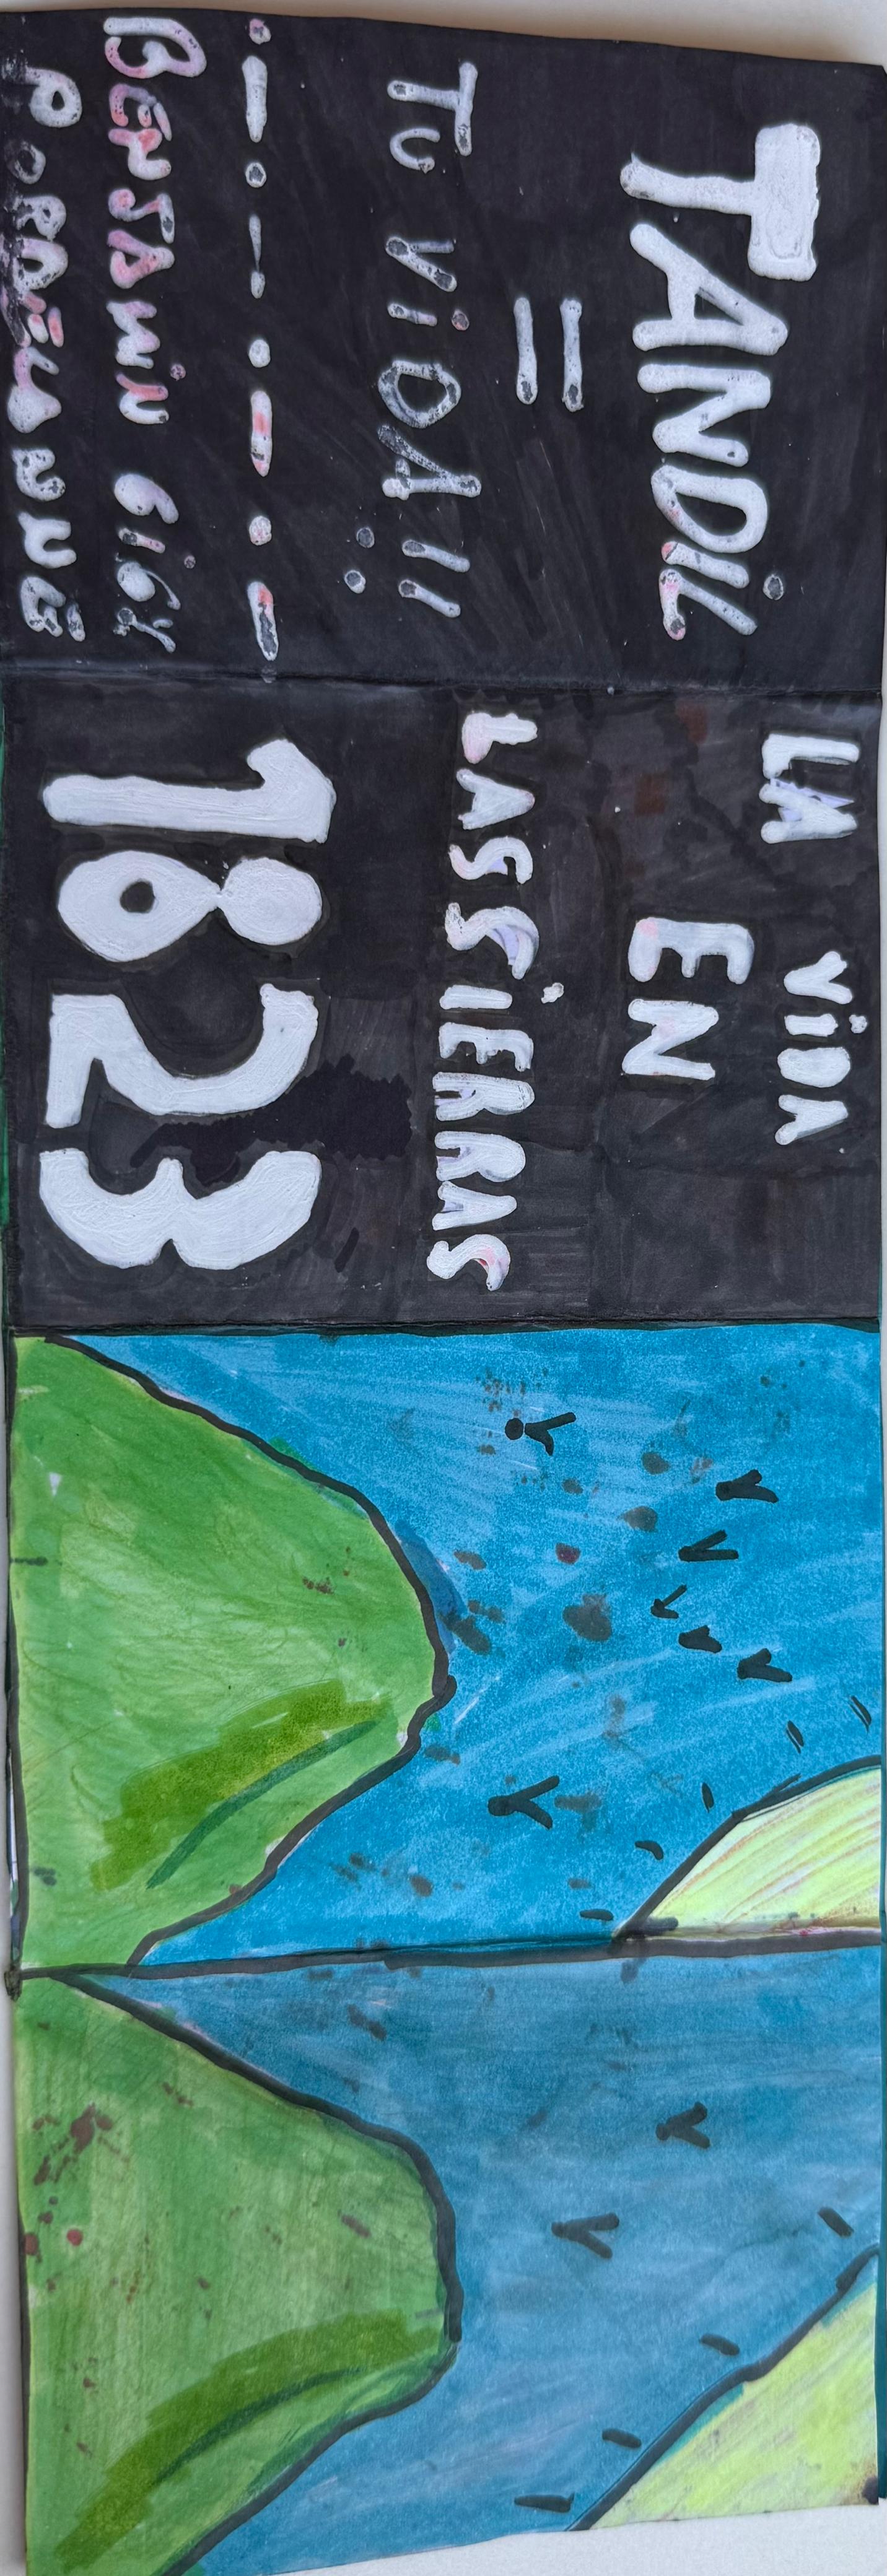 TANDIL
=
TU ViDA!!
BENJAMiN
LA ViDA
EN
LAS SiERRAS
1823